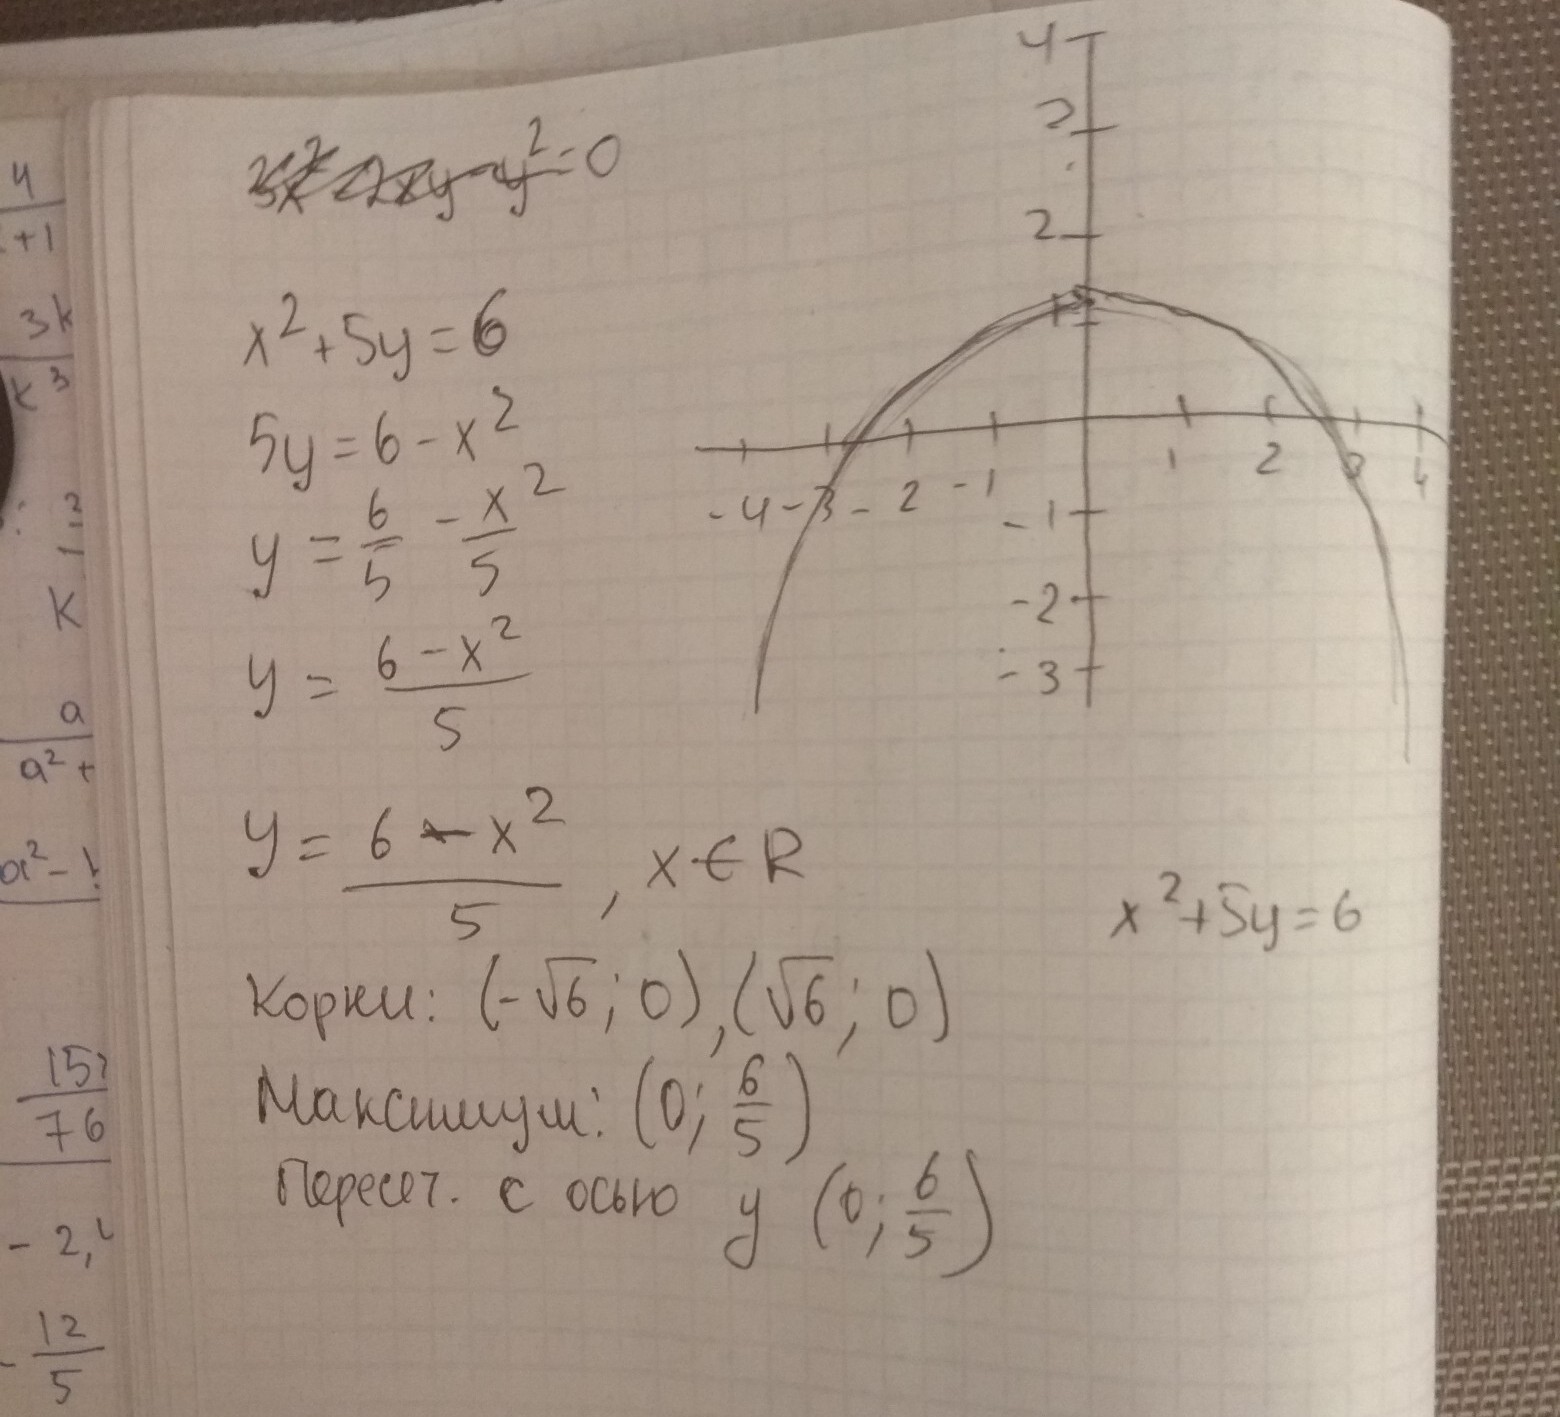 4
+1
3k
k³
K
a
a²+
a²-1
15
76
- 2,
- 12/5
=0
x²+5y=6
5y=6-x²
y = 6/5 - x²/5
y = (6-x²)/5
y = (6-x²)/5 , x∈R
Корни: (-√6; 0), (√6; 0)
Максимум: (0; 6/5)
Пересеч. с осью y (0; 6/5)
4
3
2
1
-4 -3 -2 -1 1 2 3 4
-1
-2
-3
x²+5y=6